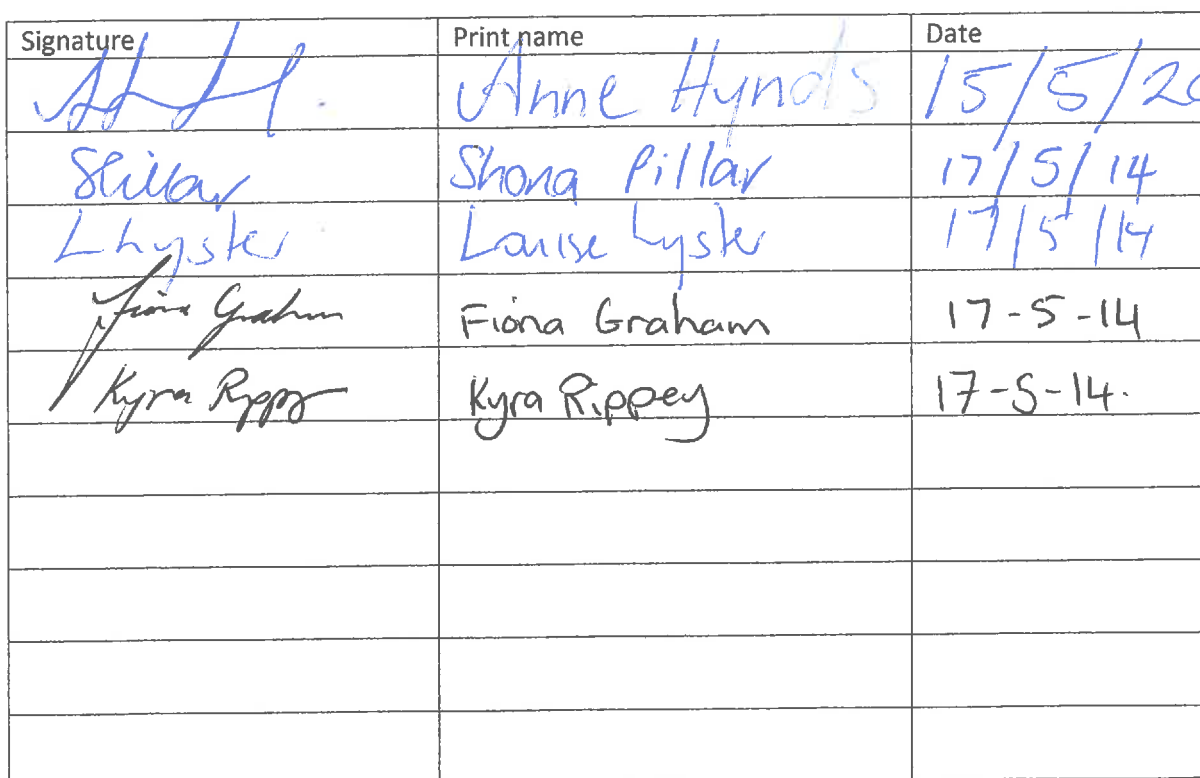 Signature Print name Date
Anne Hynds 15/5/20
SPillar Shona Pillar 17/5/14
L Lyster Louise Lyster 17/5/14
Fiona Graham Fiona Graham 17-5-14
Kyra Rippey Kyra Rippey 17-5-14.